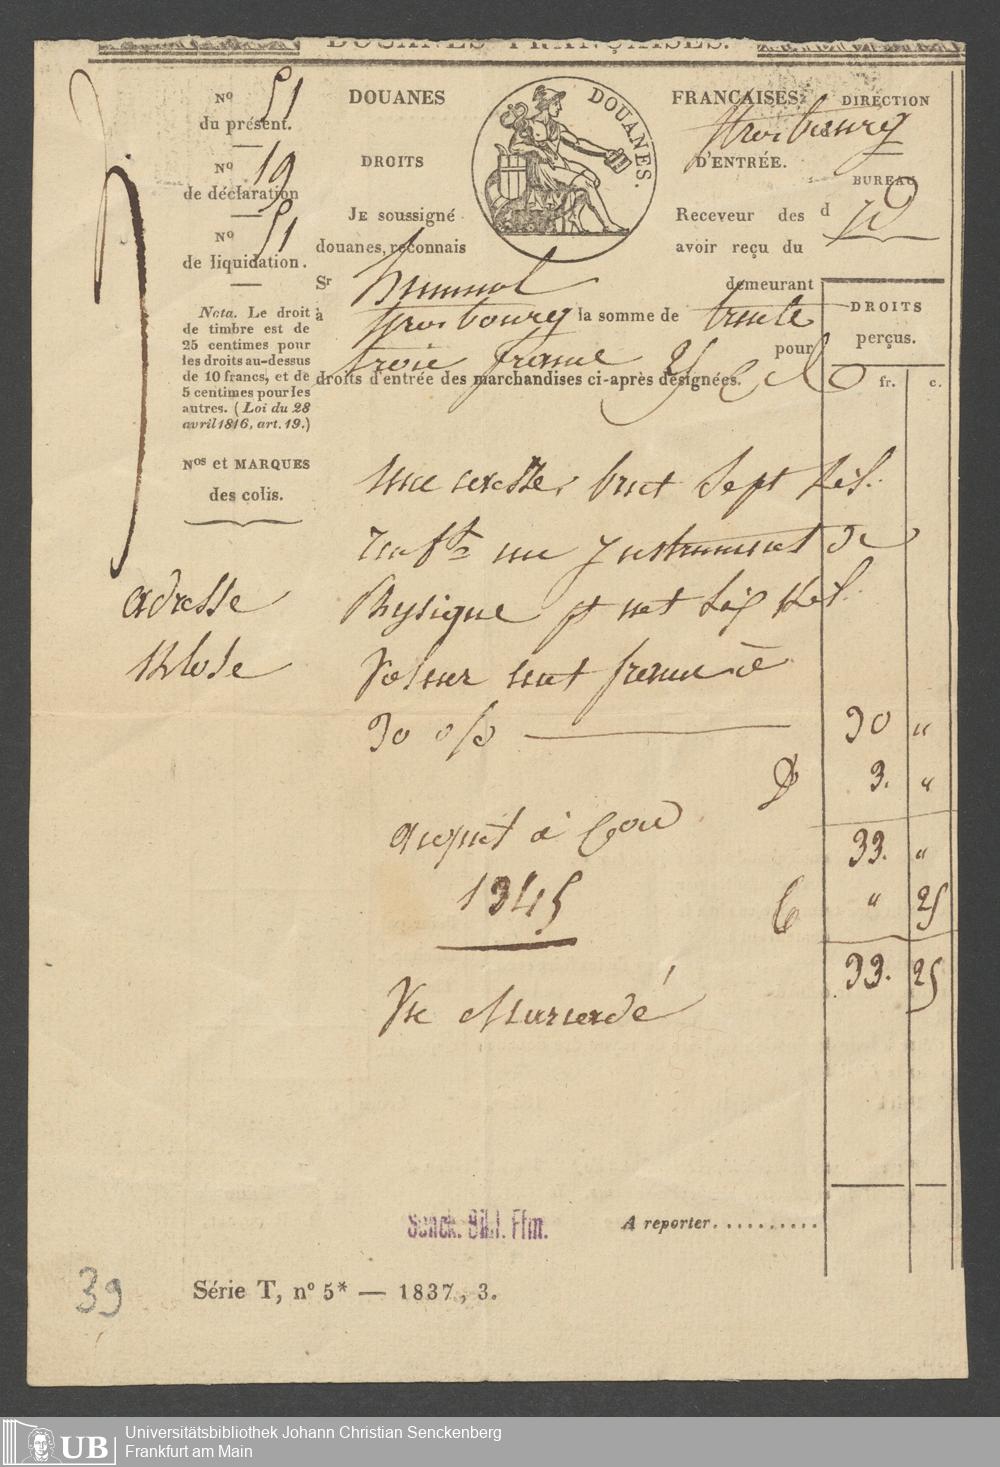 DOUANES FRANÇAISES.
No 51
du présent.
No 19
de déclaration
No 51
de liquidation.
Nota. Le droit
de timbre est de
25 centimes pour
les droits au-dessus
de 10 francs, et de
5 centimes pour les
autres. (Loi du 28
avril 1816, art. 19.)
Nos et MARQUES
des colis.
adresse
Klose
DOUANES FRANÇAISES.
DOUANES.
DROITS D'ENTRÉE.
JE soussigné Receveur des
douanes, reconnais avoir reçu du
Sr demeurant
à Strasbourg la somme de trente
trois francs 25 c pour
droits d'entrée des marchandises ci-après désignées.
DIRECTION
Strasbourg
BUREAU
d
DROITS
perçus.
fr. c.
une caisse, brut Sept Kil.
un Instrument de
Physique pt net Six Kil.
Valeur cent francs à
30 o/o 30 "
D 3. "
33. "
acquit à Caon
1345
C " 25
33. 25
A reporter..........
Senck. Bibl. Ffm.
39
Série T, no 5* — 1837, 3.
UB
Universitätsbibliothek Johann Christian Senckenberg
Frankfurt am Main